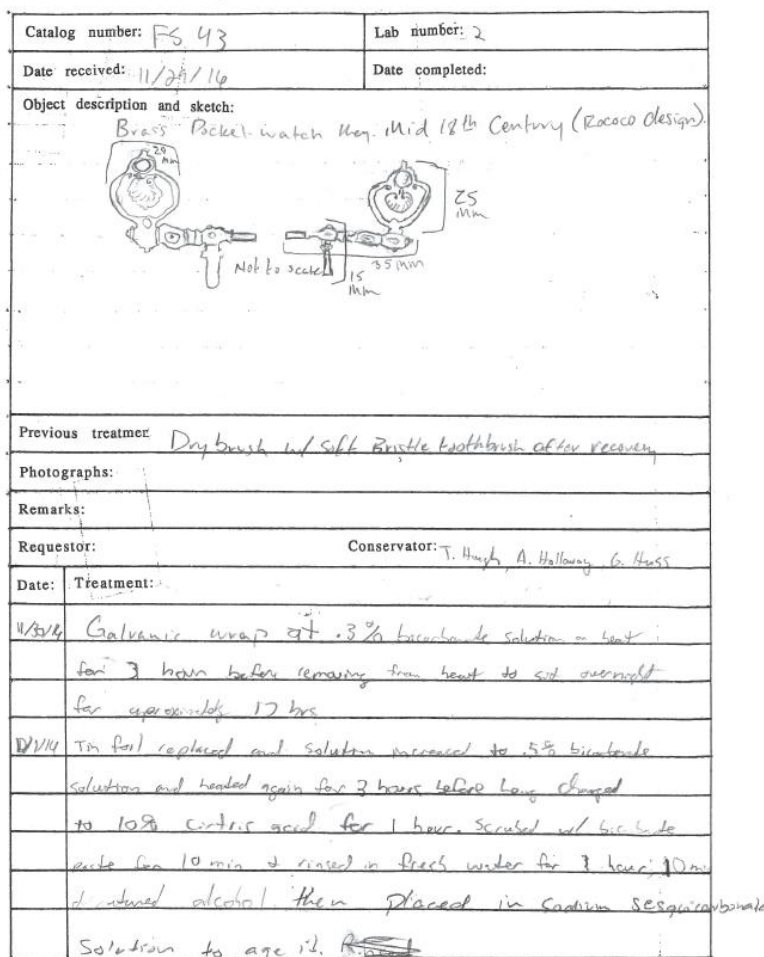 Catalog number: FS 43 Lab number: 2
Date received: 11/29/16 Date completed:
Object description and sketch:
Brass Pocket-watch Key. Mid 18th Century (Rococo design).
mm
25
mm
Not to scale
35 mm
15
mm
Previous treatmen Dry brush w/ soft Bristle toothbrush after recovery
Photographs:
Remarks:
Requestor: Conservator: T. A. Holloway, G. Huss
Date: Treatment:
Galvanic wrap at .3% bicarbonate solution on heat
for 3 hour before removing from heat to sit overnight
for aproximately 17 hrs
Tin foil replaced and solution increased to .5% bicarbonate
solution and heated again for 3 hours before being changed
to 10% cirtric acid for 1 hour. Scrubed w/ bicarbonate
paste for 10 min & rinsed in fresh water for 1 hour, 10 min
denatured alcohol then placed in sodium sesquicarbonate
Solution to age it.